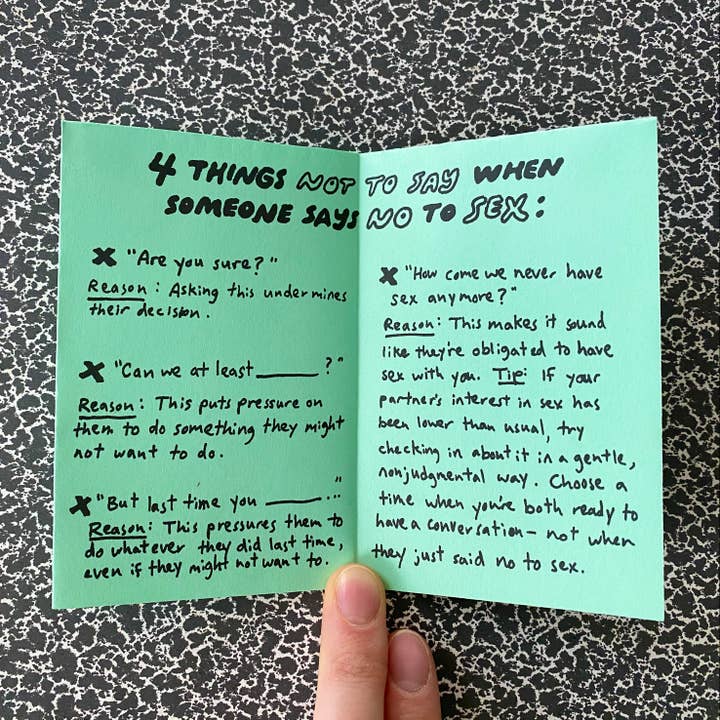 4 THINGS NOT TO SAY WHEN
SOMEONE SAYS NO TO SEX:
✗ "Are you sure?"
Reason: Asking this undermines
their decision.
✗ "Can we at least ______?"
Reason: This puts pressure on
them to do something they might
not want to do.
✗ "But last time you ______..."
Reason: This pressures them to
do whatever they did last time,
even if they might not want to.
✗ "How come we never have
sex anymore?"
Reason: This makes it sound
like they're obligated to have
sex with you. Tip: If your
partner's interest in sex has
been lower than usual, try
checking in about it in a gentle,
nonjudgmental way. Choose a
time when you're both ready to
have a conversation - not when
they just said no to sex.